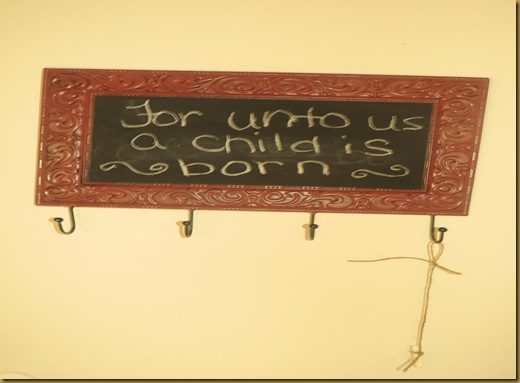 For unto us
a child is
born